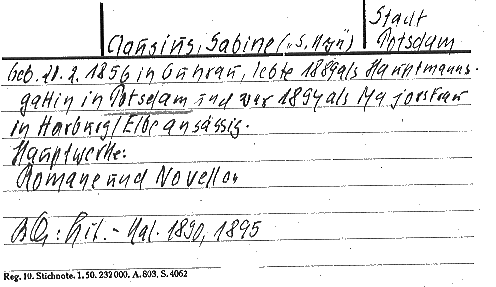 Clausius, Sabine („S. Hyn“)
Stadt
Potsdam
Geb. 20.2.1856 in Guhrau, lebte 1889 als Hauptmanns-
gattin in Potsdam und war 1894 als Majorsfrau
in Harburg/Elbe ansässig.
Hauptwerke:
Romane und Novellen
BQ: Lit.-Kal. 1890, 1895
Reg. 10. Stichnote. 1. 50. 232000. A. 803. S. 4062